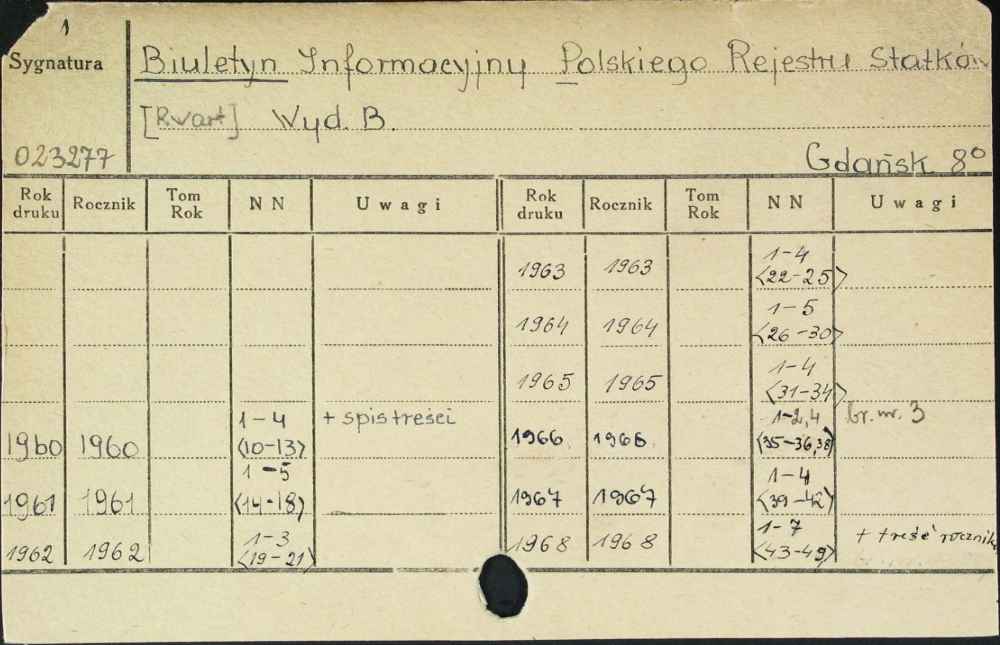 1
Sygnatura
Biuletyn Informacyjny Polskiego Rejestru Statków
[Kwart] Wyd. B.
023277
Gdańsk 8°
Rok druku Rocznik Tom Rok NN Uwagi Rok druku Rocznik Tom Rok NN Uwagi
1963 1963 1-4 <22-25>
1964 1964 1-5 <26-30>
1965 1965 1-4 <31-34>
1960 1960 1-4 <10-13> + spis treści 1966 1966 1-2,4 <35-36,38> br. nr. 3
1961 1961 1-5 <14-18> 1967 1967 1-4 <39-42>
1962 1962 1-3 <19-21> 1968 1968 1-7 <43-49> + treść rocznika